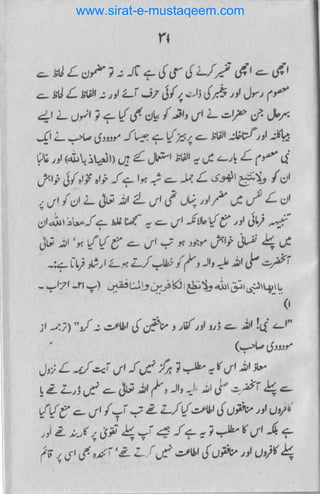 www.sirat-e-mustaqeem.com
۳۱
اچھی اچھی تفسیر کرنے کی سعی کی ہے تاکہ نہ تو مضمون کے لحاظ سے
معصوم رسول اور پیغمبر کی ذات پر کوئی حرف آئے اور نہ الفاظ کے لحاظ سے
جن مترجمین حضرات نے اس واقعہ کو بیان بھی کیا ہے تو انہوں نے ایسے
بیباکانہ اور گستاخانہ الفاظ سے پرہیز کیا ہے جیسا کہ مودودی صاحب نے ایک
نبی معصوم کے بارے میں یہ الفاظ استعمال کئے ہیں (العیاذ باللہ) اور بتایا
ان کو ولا تتبع الھوی کے جملہ سے شبہ ہوا ہے کہ خواہ مخواہ کوئی خواہش
ان کے نفس میں مضمر اور پنہاں تھی اس لئے اللہ تعالیٰ نے ان کو اس پر
تنبیہہ فرمائی اور منع کیا حالانکہ اس سے یہ سمجھنا غلط ہے کہ معاذ اللہ ان
میں پہلے نفسانی خواہش موجود ہو تب اس سے منع کیا گیا ہو' اللہ تعالیٰ نے
آنحضرت صلی اللہ علیہ والہ وسلم کو خطاب کرتے ہوئے ارشاد فرمایا ہے:۔
یاایھاالنبی اتق اللہ ولا تطع الکافرین والمنافقین (پ ۲۱۔ احزاب۔
۱)
"اے نبی! اللہ سے ڈرو اور کفار و منافقین کی اطاعت نہ کرو" (ترجمہ از
مودودی صاحب)
معاذ اللہ کیا اس کا یہ مطلب تو ہرگز نہیں کہ اس آیت کریمہ کے نزول
سے پہلے آنحضرت صلی اللہ علیہ والہ وسلم اللہ تعالیٰ سے نہیں ڈرتے تھے یا
کافروں اور منافقوں کی اطاعت کیا کرتے تھے تب آپ کو اس سے منع کیا گیا
ہے بلکہ اس کا مطلب تو یہ ہے کہ جیسے آپ پہلے تقویٰ پر کاربند تھے اور
پہلے کافروں اور منافقوں کی اطاعت نہیں کرتے تھے' آئندہ بھی اسی پر قائم